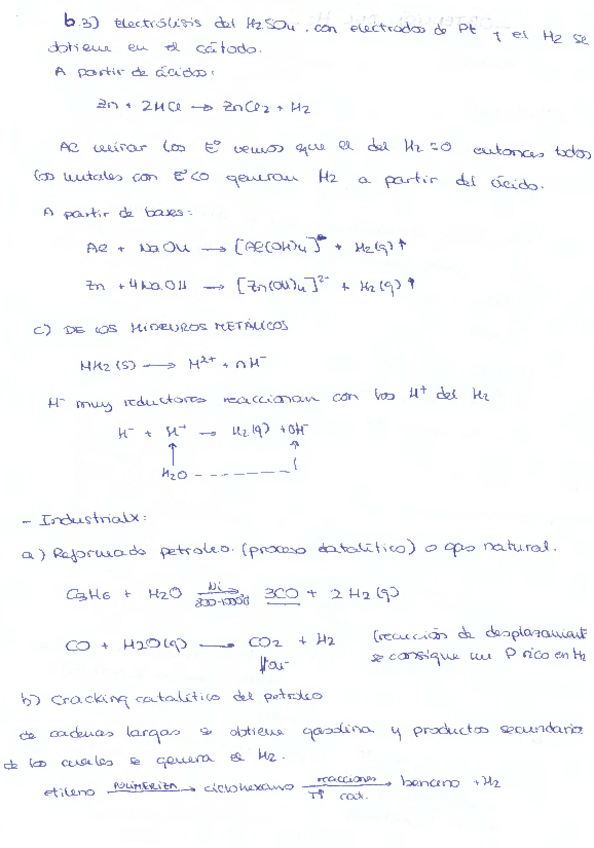 b.3) electrólisis del H2SO4. con electrodos de Pt y el H2 se
obtiene en el cátodo.
A partir de ácidos:
Zn + 2HCl → ZnCl2 + H2
Al mirar los Eº vemos que el del H2=0 entonces todos
los metales con Eº<0 generan H2 a partir del ácido.
A partir de bases:
Al + NaOH → [Al(OH)4]⁻ + H2(g)↑
Zn + 4NaOH → [Zn(OH)4]²⁻ + H2(g)↑
c) DE LOS HIDRUROS METÁLICOS
MH2(s) → M²⁺ + nH⁻
H⁻ muy reductores reaccionan con los H⁺ del H2
H⁻ + H⁺ → H2(g) + OH⁻
H2O
- Industrialx:
a) Reformado petroleo. (proceso catalítico) o gas natural.
C3H6 + H2O Ni → 3CO + 2H2(g)
CO + H2O(g) → CO2 + H2 (reacción de desplazamient
se consigue un P rico en H2
b) Cracking catalítico del petroleo
de cadenas largas se obtiene gasolina y productos secundario
de los cuales se genera el H2.
etileno POLIMERIZA → ciclohexano reacciones → benceno + H2
Tª cat.